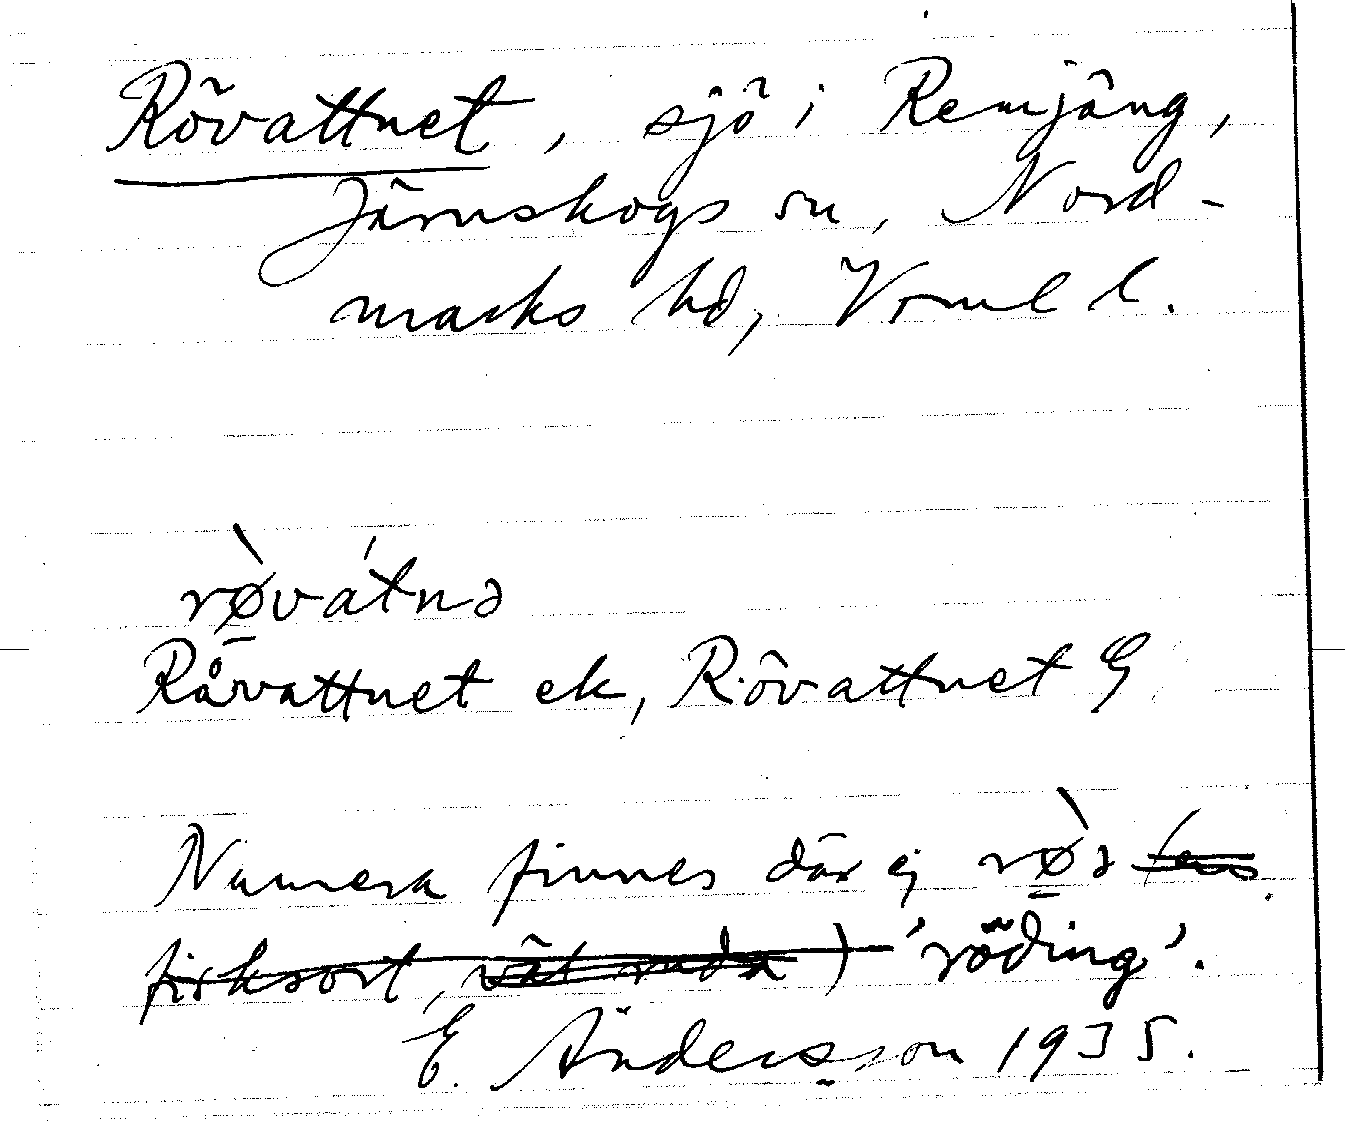 Rövattnet, sjö i Remjäng,
Järnskogs sn, Nord-
marks hd, Vrml l.
rø̀vátnə
Råvattnet ek, Rövattnet G
Numera finnes där ej rø̀ə (en
fisksort, ) 'röding'.
E. Andersson 1935.